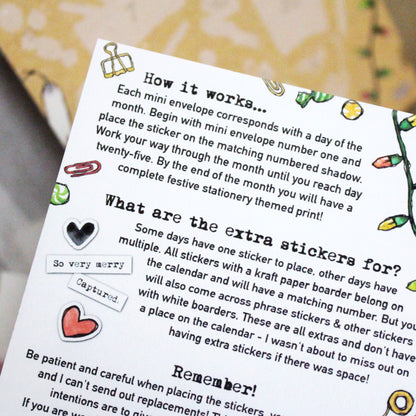 How it works...
Each mini envelope corresponds with a day of the
month. Begin with mini envelope number one and
place the sticker on the matching numbered shadow.
Work your way through the month until you reach day
twenty-five. By the end of the month you will have a
complete festive stationery themed print!
What are the extra stickers for?
Some days have one sticker to place, other days have
multiple. All stickers with a kraft paper boarder belong on
the calendar and will have a matching number. But you
will also come across phrase stickers & other stickers
with white boarders. These are all extras and don't have
a place on the calendar - I wasn't about to miss out on
having extra stickers if there was space!
So very merry
Captured
Remember!
Be patient and careful when placing the stickers, you
and I can't send out replacements!
intentions are to give
If you are